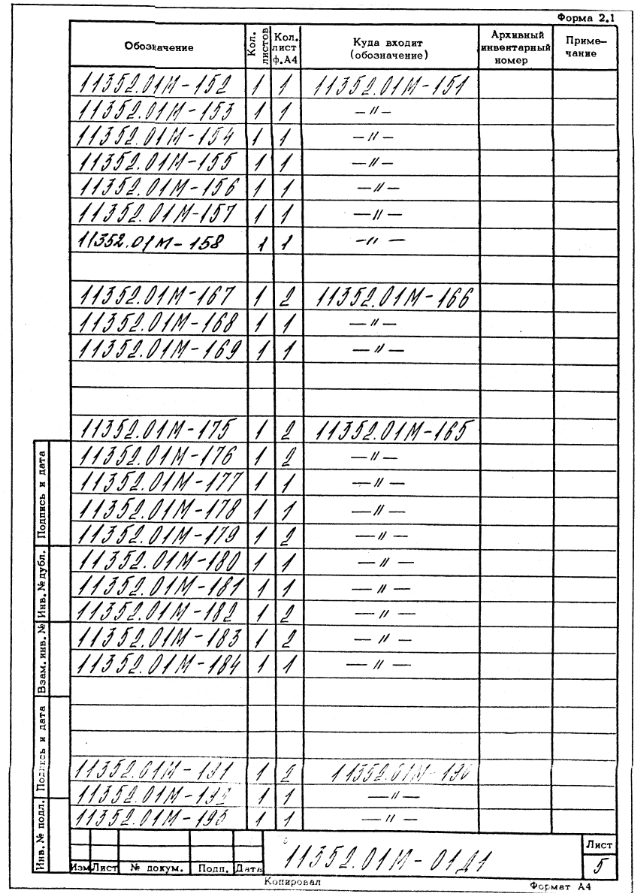 Форма 2.1
Обозначение Кол. листов Кол. лист ф.А4 Куда входит (обозначение) Архивный инвентарный номер Приме-чание
11352.01М-152 1 1 11352.01М-151
11352.01М-153 1 1 —〃—
11352.01М-154 1 1 —〃—
11352.01М-155 1 1 —〃—
11352.01М-156 1 1 —〃—
11352.01М-157 1 1 —〃—
11352.01М-158 1 1 —〃—
11352.01М-167 1 2 11352.01М-166
11352.01М-168 1 1 —〃—
11352.01М-169 1 1 —〃—
11352.01М-175 1 2 11352.01М-165
11352.01М-176 1 2 —〃—
11352.01М-177 1 1 —〃—
11352.01М-178 1 1 —〃—
11352.01М-179 1 2 —〃—
11352.01М-180 1 1 —〃—
11352.01М-181 1 1 —〃—
11352.01М-182 1 2 —〃—
11352.01М-183 1 2 —〃—
11352.01М-184 1 1 —〃—
11352.01М-191 1 2 11352.01М-190
11352.01М-192 1 1 —〃—
11352.01М-193 1 1 —〃—
Подпись и дата
Инв. № дубл.
Взам. инв. №
Подпись и дата
Инв. № подл.
Изм Лист № докум. Подп. Дата
11352.01М-01Д1
Лист
5
Копировал Формат А4